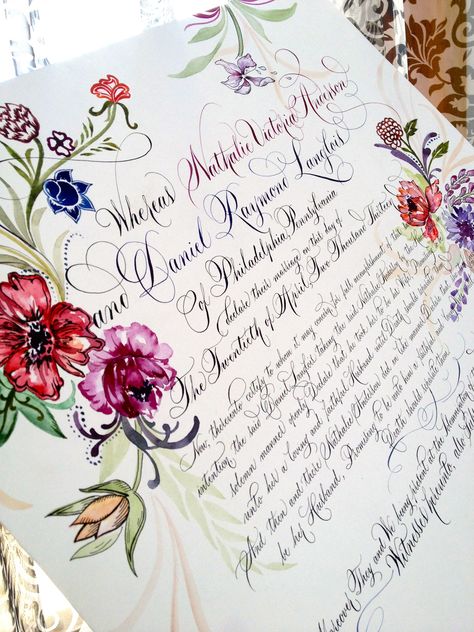 Whereas Nathalie Victoria Anderson
and Daniel Raymond Langlois
Of Philadelphia, Pennsylvania,
declare their marriage on this day of
The Twentieth of April, Two Thousand Thirteen
Now, these are to certify to whom it may concern, for full accomplishment of
intention, the said Daniel Langlois taking the said Nathalie Anderson
solemn manner openly Declare that he took her to be his Wife,
unto her a loving and faithful Husband, until Death should separate
And then and there Nathalie Anderson did in the manner Declare that
be her Husband, Promising to be unto him a faithful and
Death should separate them.
Moreover They and We being present at the
Witnesses Presents, also